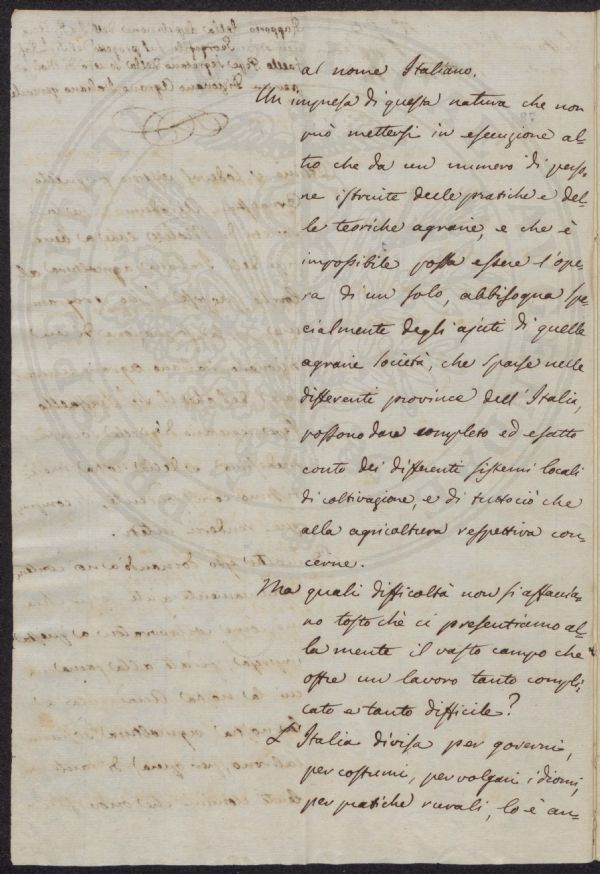 al nome Italiano.
Un impresa di questa natura che non
può mettersi in esecuzione al=
tro che da un numero di perso=
ne istruite delle pratiche e del=
le teoriche agrarie, e che è
impossibile possa essere l'ope=
ra di un solo, abbisogna spe=
cialmente degli ajuti di quelle
agrarie società, che sparse nelle
differenti province dell'Italia,
possono dare completo ed esatto
conto dei differenti sistemi locali
di coltivazione, e di tuttociò che
alla agricoltura respettiva con=
cerne.
Ma quali difficoltà non si affaccia=
no tosto chè ci presentiamo al=
la mente il vasto campo che
offre un lavoro tanto compli=
cato e tanto difficile?
L'Italia divisa per governi,
per costumi, per volgari idiomi,
per pratiche rurali, lo è an=